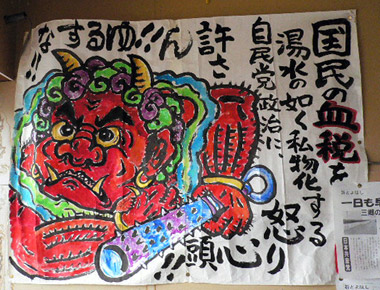 国民の血税を
湯水の如く私物化する
自民党政治に
怒り心頭!!
許さん!!
ゆるすな!!
一日も